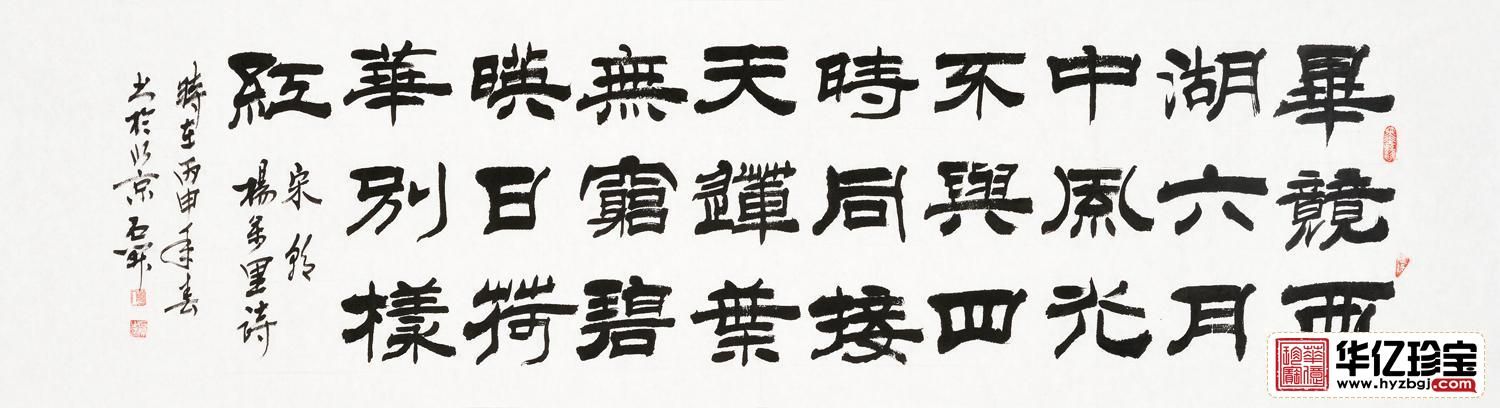 畢競西
湖六月
中風光
不與四
時同接
天蓮葉
無窮碧
暎日荷
華別樣
紅
宋朝
楊萬里詩
時在丙申年春
书於北京石
華億珍寶
华亿珍宝
www.hyzbgj.com